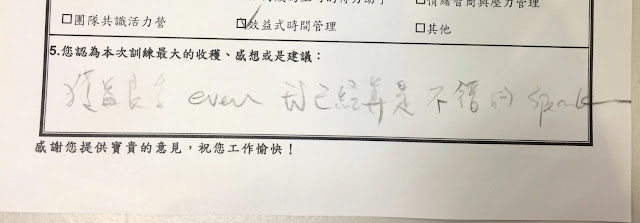 情緒智商與壓力管理
□團隊共識活力營 ☑效益式時間管理 □其他
5.您認為本次訓練最大的收穫、感想或是建議：
獲益良多 even 我已經算是不錯的 speaker
感謝您提供寶貴的意見，祝您工作愉快！